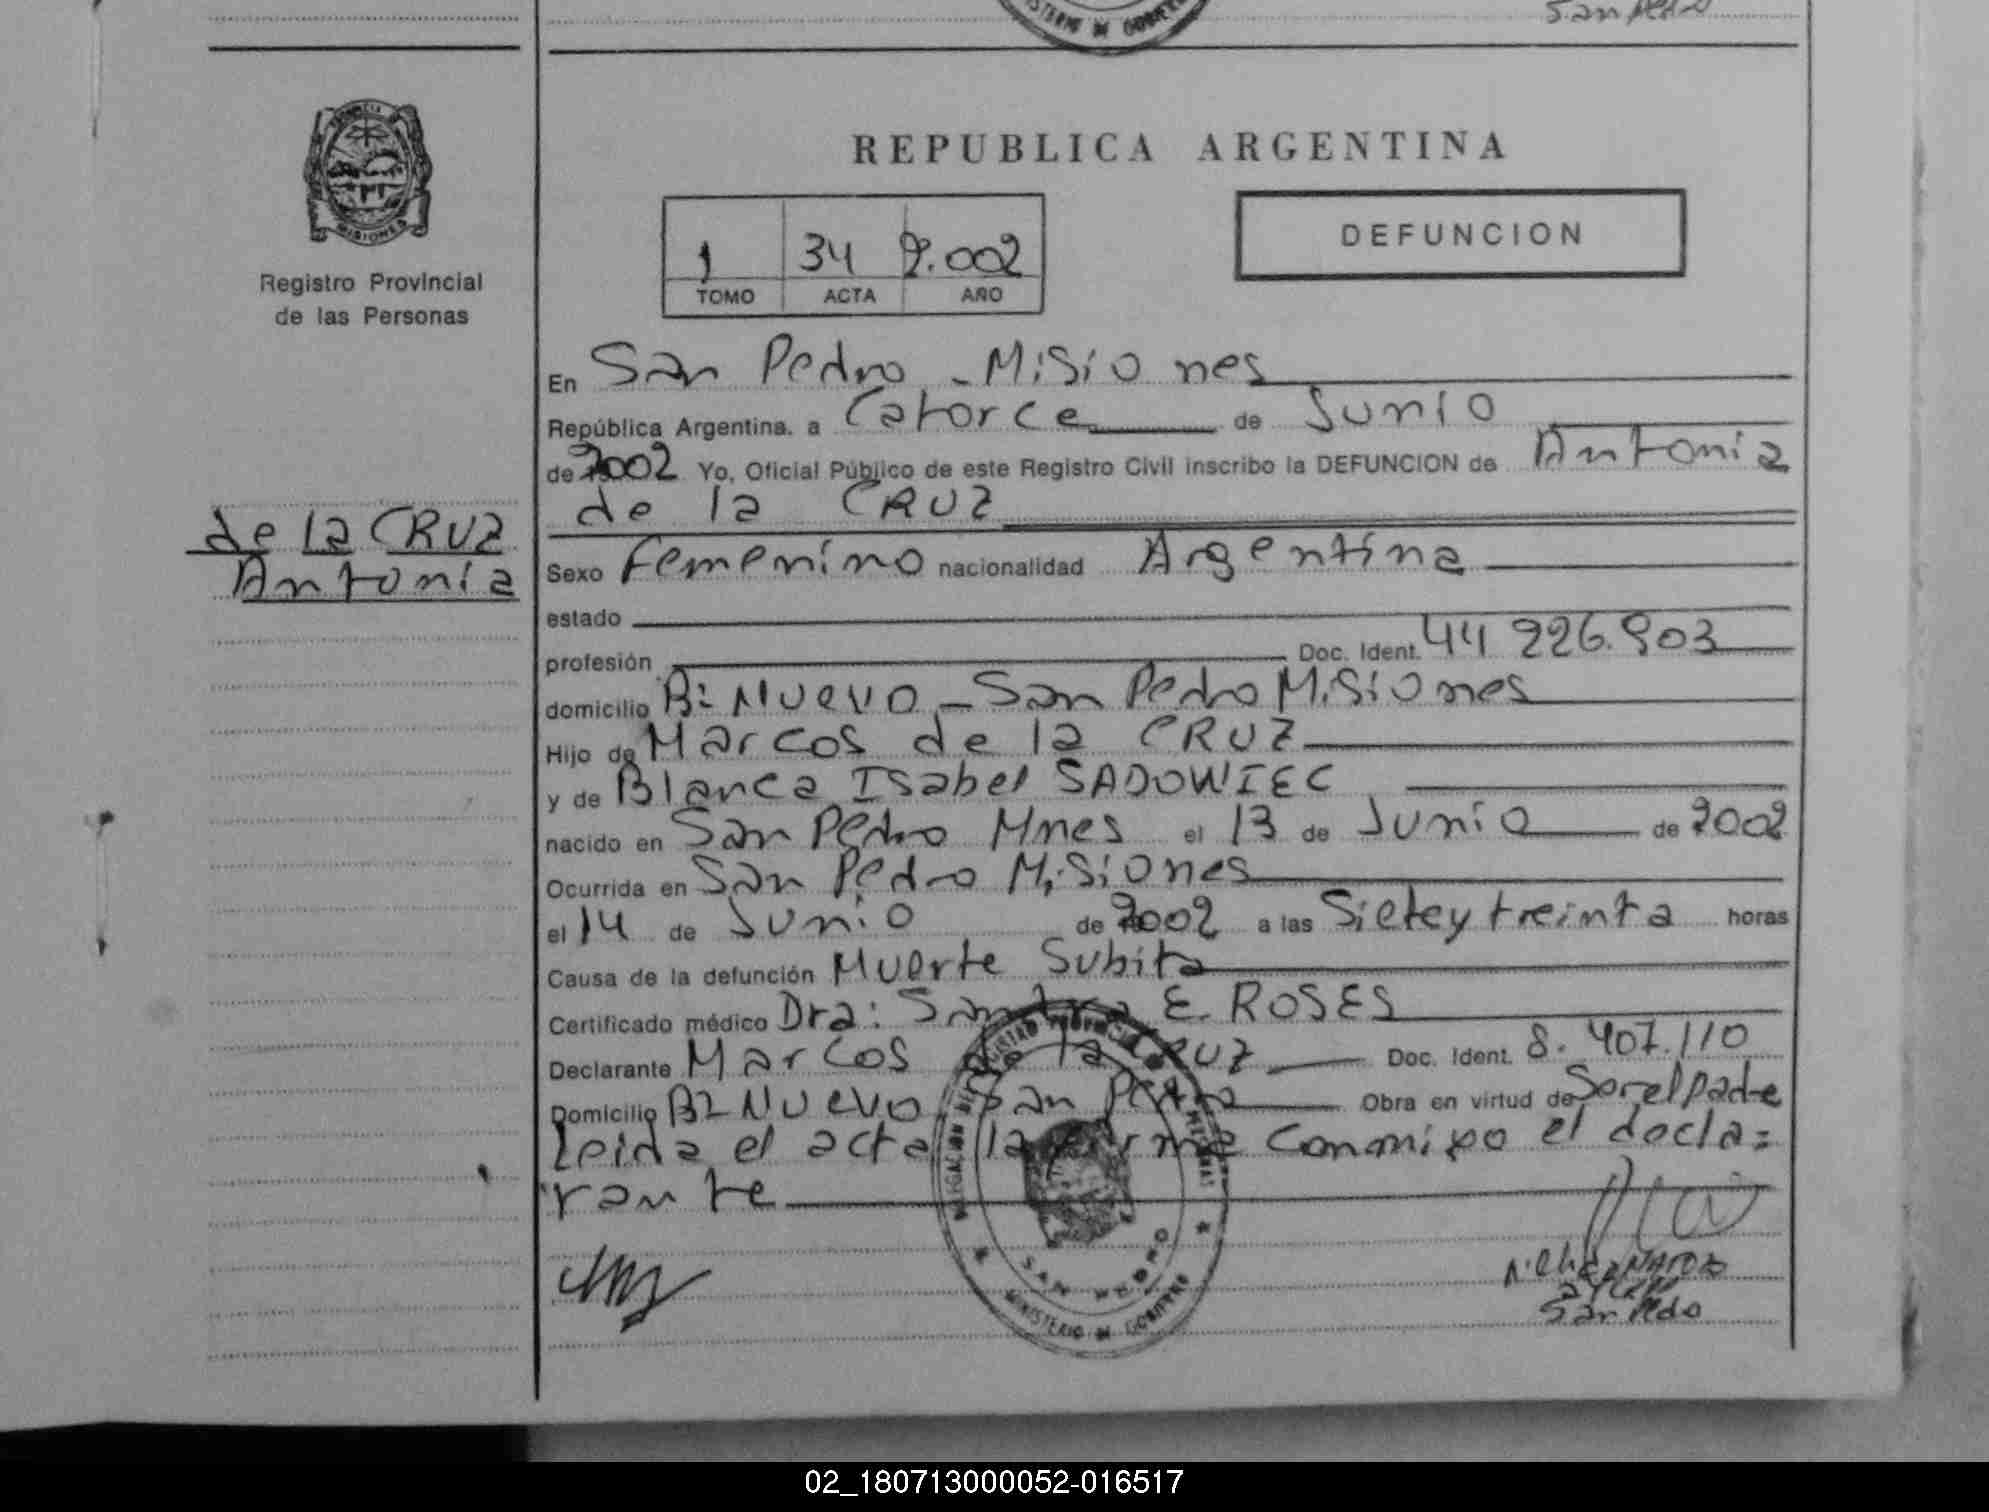 San Pedro
MINISTERIO DE GOBIERNO
PROVINCIA
MISIONES
Registro Provincial
de las Personas
REPUBLICA ARGENTINA
1 34 2.002
TOMO ACTA AÑO
DEFUNCION
En San Pedro - Misiones
República Argentina. a Catorce de Junio
de 2002 Yo, Oficial Público de este Registro Civil inscribo la DEFUNCION de Antonia
de la CRUZ
de la CRUZ
Antonia
Sexo Femenino nacionalidad Argentina
estado
profesión Doc. Ident. 44 226.903
domicilio Bº Nuevo - San Pedro Misiones
Hijo de Marcos de la CRUZ
y de Blanca Isabel SADOWIEC
nacido en San Pedro Mnes el 13 de Junio de 2002
Ocurrida en San Pedro Misiones
el 14 de Junio de 2002 a las Siete y treinta horas
Causa de la defunción Muerte Subita
Certificado médico Dra: Sandra E. ROSES
Declarante Marcos de la CRUZ Doc. Ident. 8.407.110
Domicilio Bº Nuevo San Pedro Obra en virtud de Ser el padre
Leida el acta la firma conmigo el decla=
rante
SAN PEDRO
MINISTERIO DE GOBIERNO
San Pedro
02_180713000052-016517